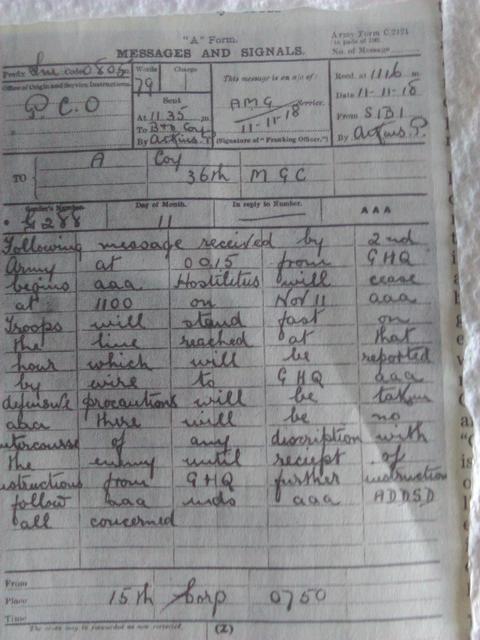 "A" Form.
Army Form C.2121
MESSAGES AND SIGNALS.
No. of Message
Prefix Sm Code 0805
Words
Charge
This message is on a/c of:
Recd. at 1116 m.
Office of Origin and Service Instructions.
79
G.C.O
Sent
AMG Service.
Date 11-11-18
At 11.35 m.
11-11-18
From SIB1
To B+D Coy
By Atkins. P
(Signature of "Franking Officer.")
By Atkins. P.
TO
A Coy
36th MGC
Sender's Number.
Day of Month.
In reply to Number.
AAA
G288
11
Following message received by 2nd
Army at 0015 from GHQ
begins aaa Hostilities will cease
at 1100 on Nov 11 aaa
Troops will stand fast on
the line reached at that
hour which will be reported
by wire to GHQ aaa
defensive precautions will be taken
aaa there will be no
ntercourse of any discription with
the enemy until reciept of
nstructions from GHQ further instructions
follow aaa ends aaa ADDSD
all concerned
From
Place
15th Corp 0750
Time
(Z)